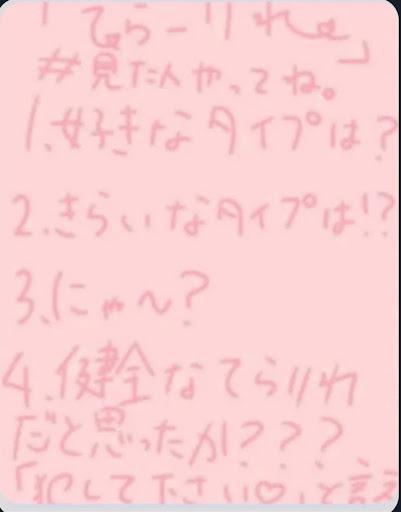 「てらーりれ。」
#見た人やってね。
1.好きなタイプは?
2.きらいなタイプは!?
3.にゃ〜?
4.健全なてらりれ
だと思ったか???
「犯して下さい♡」と言え